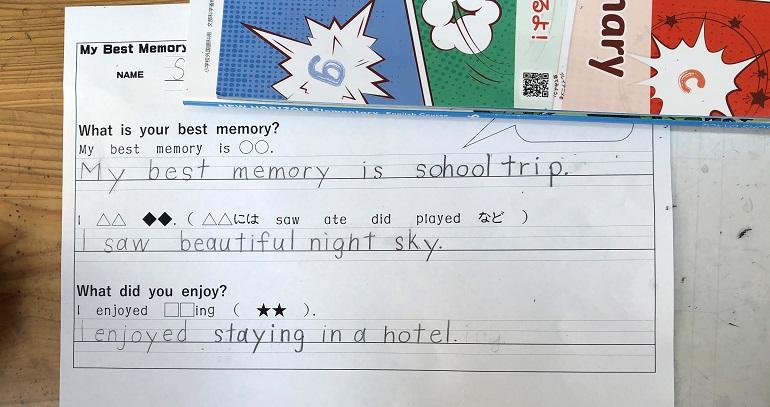 るよ!
mary
NEW HORIZON Elementary English Course
My Best Memory
NAME S
What is your best memory?
My best memory is ○○.
My best memory is school trip.
I △△ ◆◆. ( △△には saw ate did played など )
I saw beautiful night sky.
What did you enjoy?
I enjoyed □□ing ( ★★ ).
I enjoyed staying in a hotel.